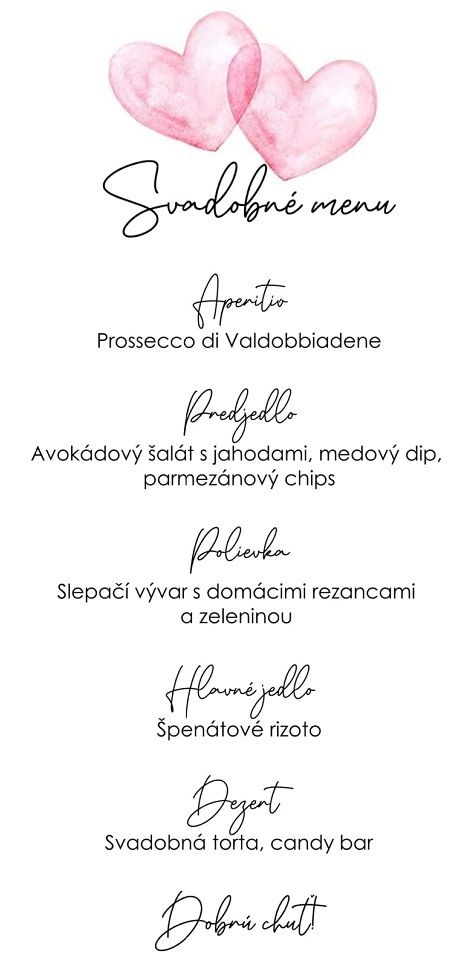 Svadobné menu
Aperitív
Prossecco di Valdobbiadene
Predjedlo
Avokádový šalát s jahodami, medový dip,
parmezánový chips
Polievka
Slepačí vývar s domácimi rezancami
a zeleninou
Hlavné jedlo
Špenátové rizoto
Dezert
Svadobná torta, candy bar
Dobrú chuť!